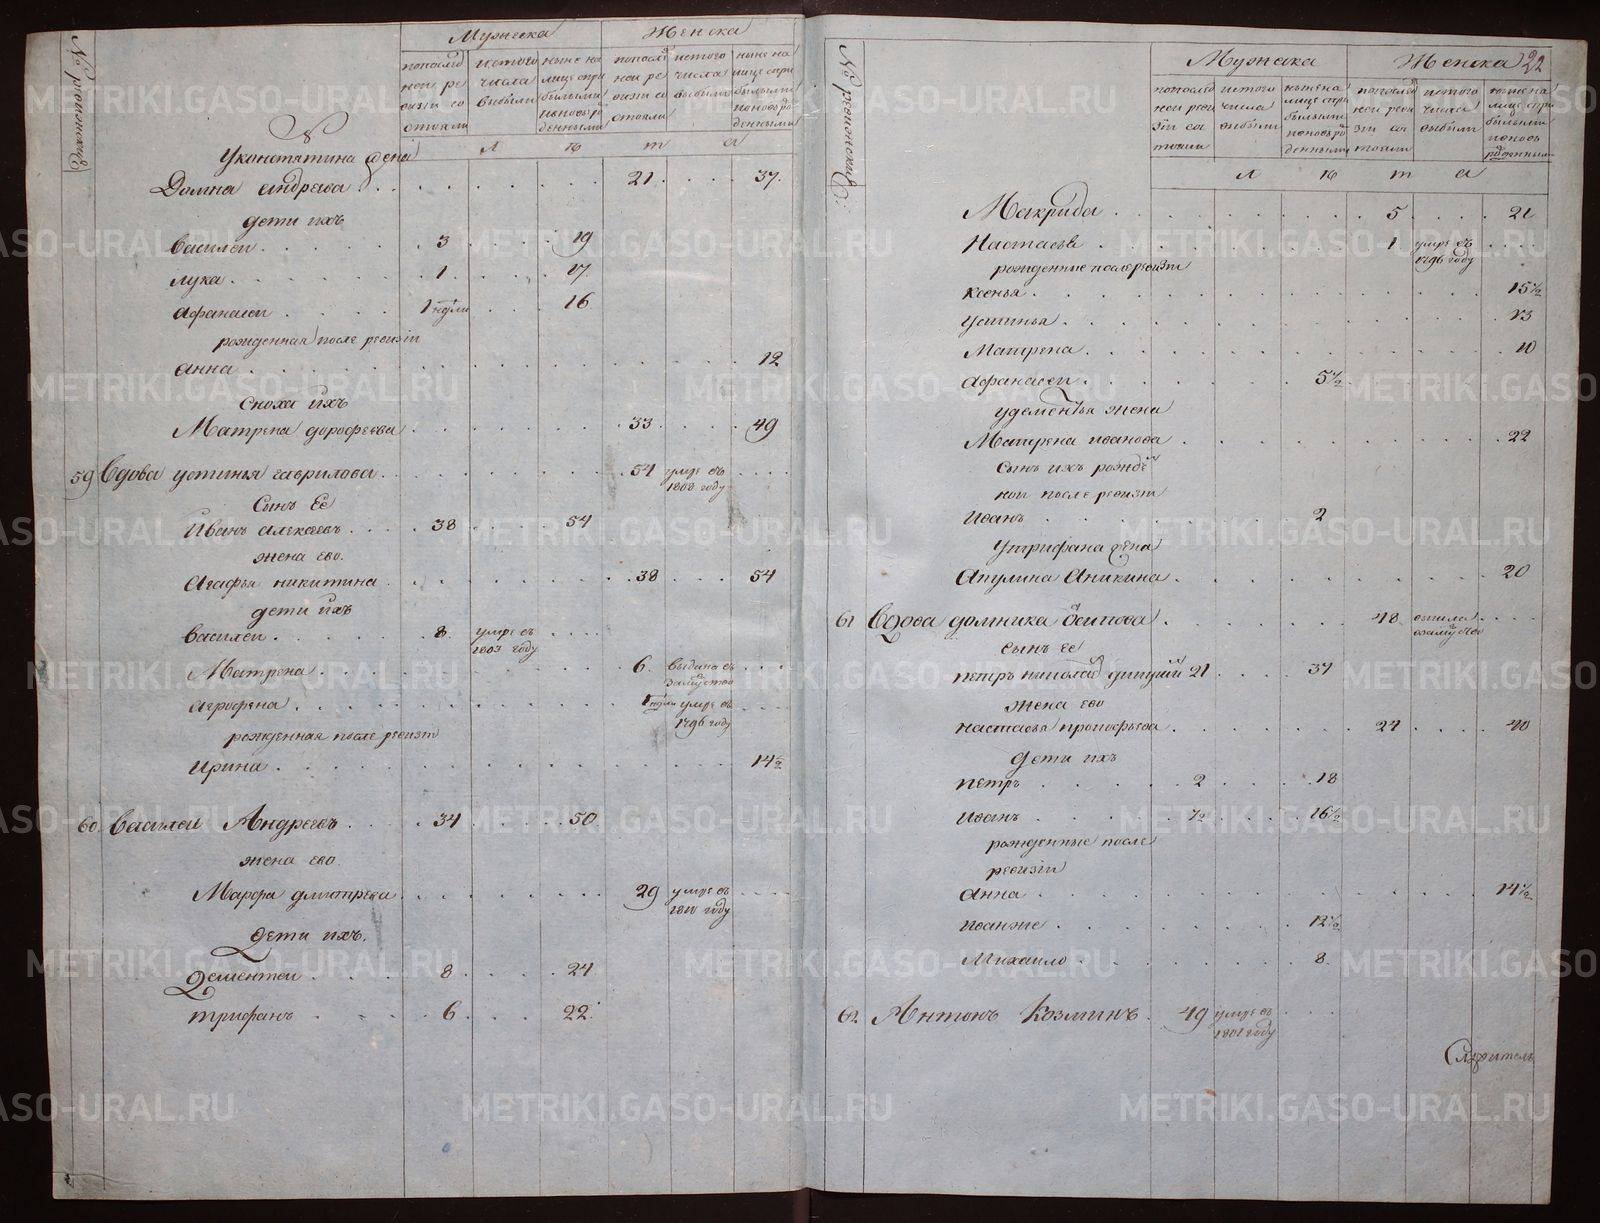 № ревизския
Мужеска
Женска
попослед ней ре визiи со стояли
истого числа выбыли
ныне на лице спри былыми ивновь ро жденными
попосле ней ре визiи со стояли
истого числа выбыли
ныне на лице спри былыми ивновь ро жденными
Л е т а
Уконстятина жена
Домна андреева 21 37
дети ихъ
василеи 3 19
лука 1 17
афанасеи 1 нѣдли 16
рожденная после ревизiи
анна 12
Сноха ихъ
Матрена дорофеева 33 49
59 Вдова устинья гаврилова 54 умре въ
1808 году
Сынъ Ее
Иванъ алексеевъ 38 54
жена ево
Агафья никитина 38 54
дети ихъ
василеи 8 умре въ
1803 году
Матрена 6 выдана въ
замуство
агрофена умре въ
1796 году
рожденная после ревизiи
Ирина 14 1/2
60 Василеи Андреевъ 34 50
жена ево
Марфа дмитрева 29 умре въ
году
Дети ихъ
Дементеи 8 24
трифанъ 6 22
№ ревизския
Мужеска
Женска 22
попослед ней реви зiи сос тояли
истого числа выбыли
ныне на лице спри былыми ивновь ро жденными
попослед ней реви зiи сос тояли
истого числа выбыли
ныне на лице спри былыми ивновь рожденными
Л е т а
Макрида 5 21
Настасья 1 умре въ
1796 году
рожденные после ревизiи
Ксенья 15 1/2
Устинья 13
Матрена 10
Афанасеи 5 1/2
удементья жена
Матрена иванова 22
Сынъ ихъ рожде
нои после ревизiи
Иванъ 2
Утрифана жена
Акулина Аникина 20
61 Вдова домника Осипова 48
Сынъ ее
петръ 21 37
Жена ево
настасья прокофьева 24 40
Дети ихъ
петръ 2 18
Иванъ 1/2 16 1/2
рожденные после
ревизiи
анна 14 1/2
иванже 12 1/2
Михаило 8
62 Антонъ Козминъ 49 умре въ
году